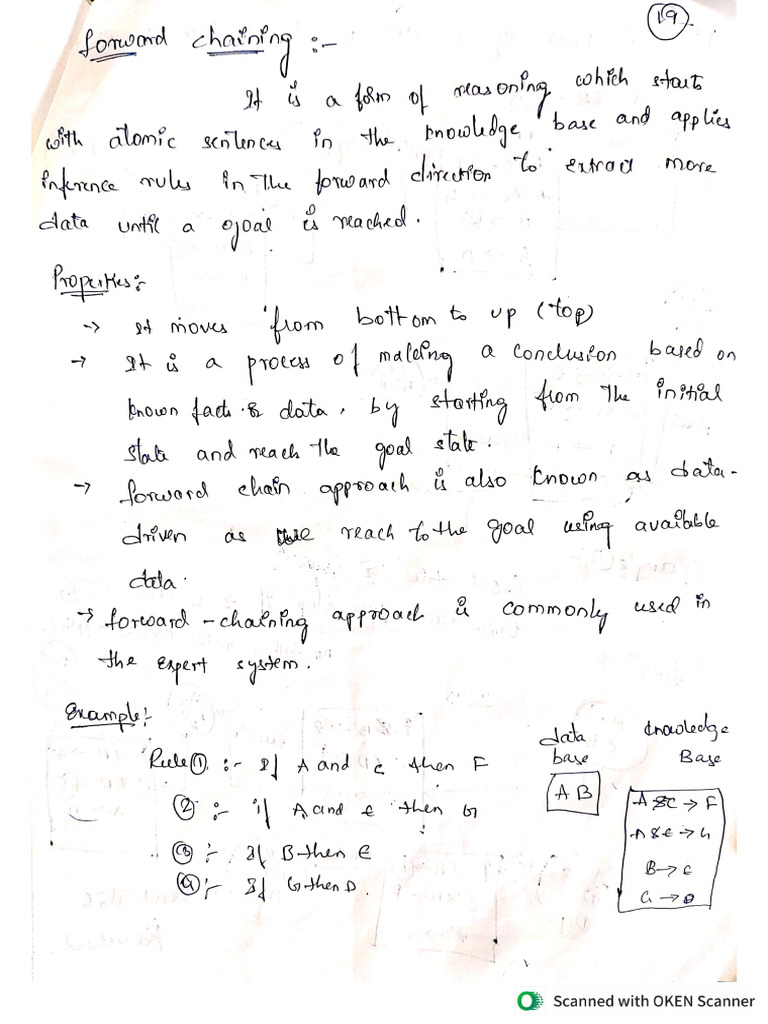 19
Forward Chaining :-
It is a form of reasoning which starts
with atomic sentences in the knowledge base and applies
inference rules in the forward direction to extract more
data until a goal is reached.
Properties:-
-> It moves from bottom to up (top)
-> It is a process of making a conclusion based on
known facts & data, by starting from the initial
state and reach the goal state.
-> forward chain approach is also known as data-
driven as we reach to the goal using available
data.
-> forward-chaining approach is commonly used in
the expert system.
Example:-
data base
knowledge Base
Rule ① :- If A and C then F
② :- if A and E then G
③ :- If B then E
④ :- If G then D.
A B
A & C → F
A & E → G
B → E
G → D
Scanned with OKEN Scanner